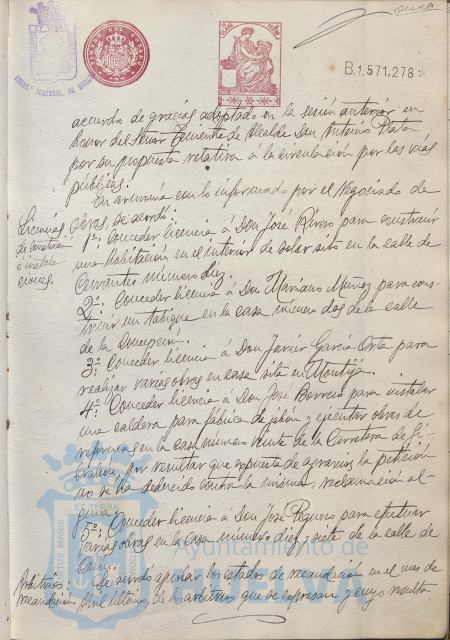 once
B.1.571.278
acuerdo de gracias adoptado en la sesión anterior en
honor del Señor Teniente de Alcalde Don Antonio Mata
por su propuesta relativa á la circulación por las vias
públicas.
En armonia con lo informado por el Negociado de
Obras, se acordó:
Licencias
de construcción
é instala-
ciones.
1º: Conceder licencia á Don José Rivero para construir
una habitación en el interior de solar sito en la calle de
Cervantes número diez.
2º: Conceder licencia á Don Mariano Muñoz para cons-
truir un tabique en la casa número dos de la calle
de la Concepción.
3º: Conceder licencia á Don Javier García Orta para
realizar varias obras en casa sita en Montija.
4º: Conceder licencia á Don José Borrero para instalar
una caldera para fábrica de jabón y ejecutar obras de
reforma en la casa número veinte de la Carretera de Gi-
braleon, por resultar que expuesta de agravios la petición
no se ha deducido contra la misma, reclamación al-
guna.
5º: Conceder licencia á Don José Peguero para efectuar
varias obras en la casa número diez y siete de la calle de
Colón.
Arbitrios.
recaudación
Se acordó aprobar los estados de recaudación en el mes de
Abril último, de los arbitrios que se expresan y cuyo resultado
Ayuntamiento de
HUELVA